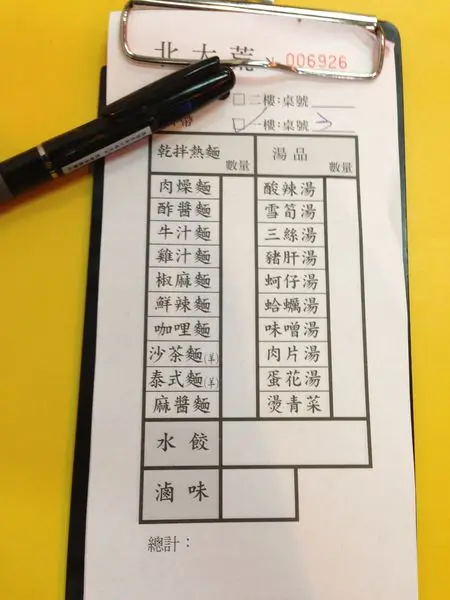 北大荒 006926
□二樓:桌號
□一樓:桌號
乾拌熱麵 數量 湯品 數量
肉燥麵 酸辣湯
酢醬麵 雪筍湯
牛汁麵 三絲湯
雞汁麵 豬肝湯
椒麻麵 蚵仔湯
鮮辣麵 蛤蠣湯
咖哩麵 味噌湯
沙茶麵(羊) 肉片湯
泰式麵(羊) 蛋花湯
麻醬麵 燙青菜
水餃
滷味
總計: